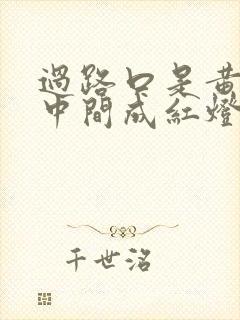 過路口是黃
中間成紅燈
千世洺